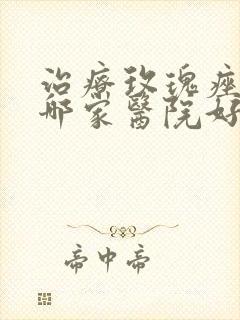 治療玫瑰痤
哪家醫院好
帝中帝